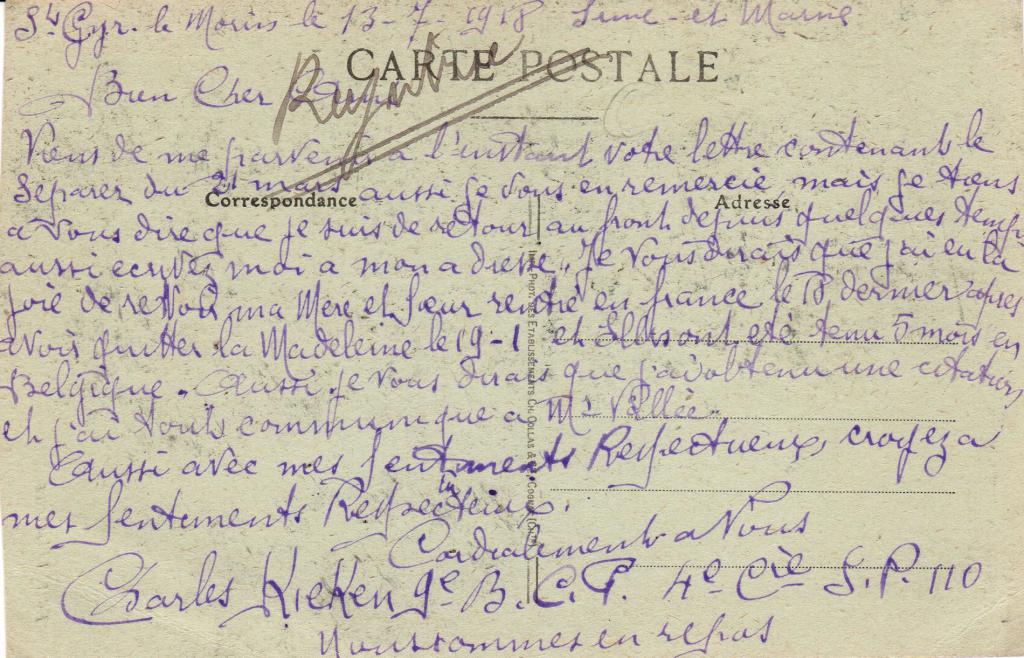 St Cyr. le Morin le 13-7-1918 Seine-et Marne
CARTE POSTALE
Bien Cher
Viens de me parvenir a l'instant votre lettre contenant le
Separer du 21 mars aussi je vous en remercie, mais je tiens
Correspondance
Adresse
a vous dire que je suis de retour au front depuis quelques temps
aussi ecrivez moi a mon adresse. Je vous dirais que j'ai eu la
joie de revoir ma Mere et sœur rentré en france le 18 dernier apres
avoir quitter la Madeleine le 19-1 et Elles ont eté tenu 5 mois en
Belgique. Aussi je vous dirais que j'ai obtenu une citation
et j'ai touts communique a Mr Vallée.
Aussi avec mes sentiments Respectueux, croyez a
mes sentiments Respectueux.
Cordialements a Vous
Charles Kieken 9e B.C.P. 4e Cie S.P. 110
Nous sommes en repos